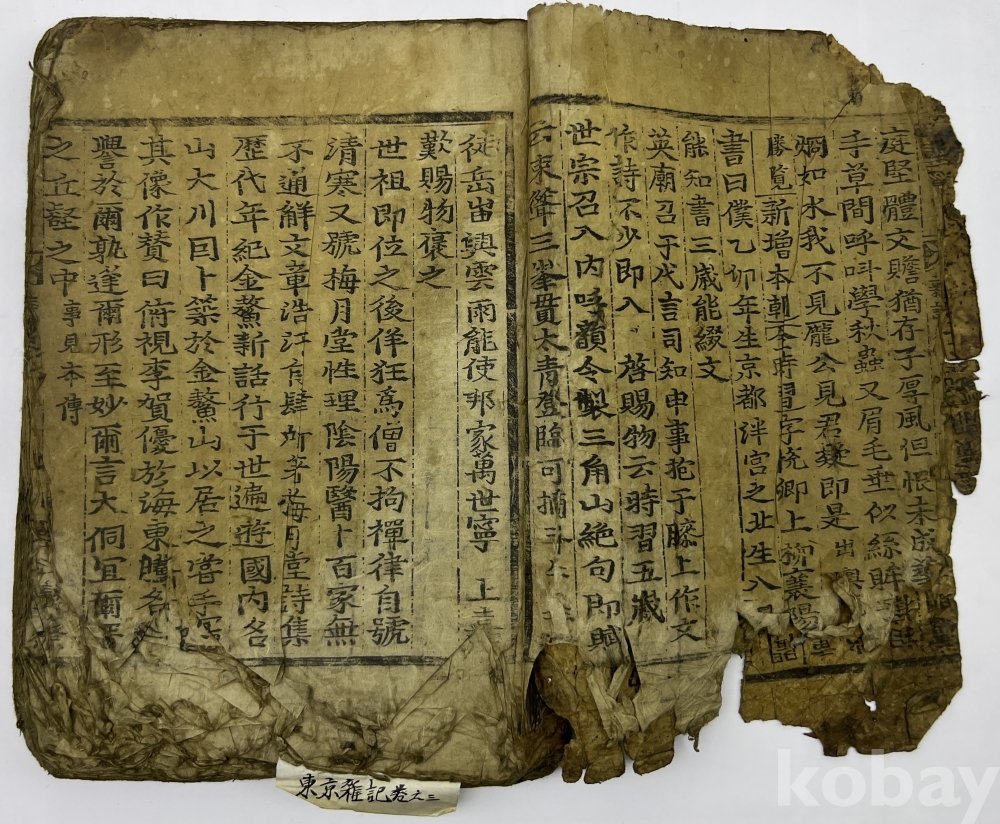 庭堅體文贍猶存子厚風但恨未成
手草間呼呌學秋蟲又眉毛垂似絲眸
烱如水我不見龐公見君纔即是出輿
勝覧新增本朝金時習字悅卿上柳襄陽
書曰僕乙卯年生京都泮宮之北生八
能知書三歲能綴文
英廟召于代言司知申事抱于膝上作文
作詩不少即入啓賜物云時習五歲
世宗召入內呼韻令製三角山絶句即賦
云束聳三峯貫太青登臨可摘斗
徒岳岫興雲雨能使邦家萬世寧上
歎賜物褒之
世祖即位之後佯狂爲僧不拘禪律自號
清寒又號梅月堂性理陰陽醫卜百家無
不通觧文章浩汗肆所著梅月堂詩集
歷代年紀金鰲新話行于世遍遊國內名
山大川曰卜築於金鰲山以居之嘗手
其像作賛曰俯視李賀優於海東騰名
譽於爾孰逢爾形至妙爾言大侗宜爾
之丘壑之中事見本傳
東京雜記卷之三
kobay